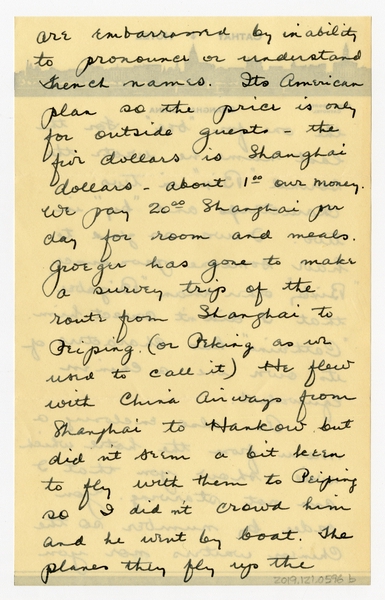 are embarrassed by inability
to pronounce or understand
French names. Its American
plan so the price is only
for outside guests - the
five dollars is Shanghai
dollars - about 1.00 our money.
We pay 20.00 Shanghai per
day for room and meals.
Groeger has gone to make
a survey trip of the
route from Shanghai to
Peiping. (or Peking as we
used to call it) He flew
with China Airways from
Shanghai to Hankow but
did n't seem a bit keen
to fly with them to Peiping
so I did n't crowd him
and he went by boat. The
planes they fly up the
2019.121.0596 b